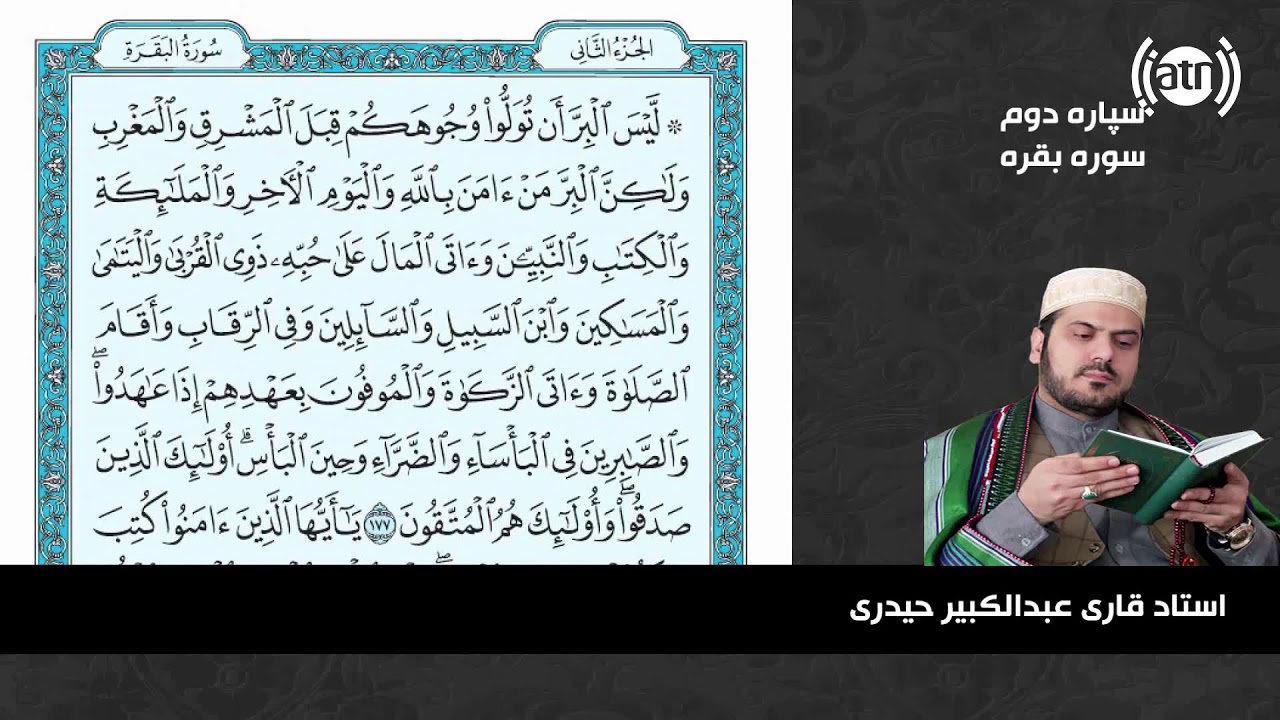 الجُزْءُ الثَّانِي
سُورَةُ البَقَرَةِ
* لَّيْسَ ٱلْبِرَّ أَن تُوَلُّوا۟ وُجُوهَكُمْ قِبَلَ ٱلْمَشْرِقِ وَٱلْمَغْرِبِ
وَلَـٰكِنَّ ٱلْبِرَّ مَنْ ءَامَنَ بِٱللَّهِ وَٱلْيَوْمِ ٱلْـَٔاخِرِ وَٱلْمَلَـٰٓئِكَةِ
وَٱلْكِتَـٰبِ وَٱلنَّبِيِّـۧنَ وَءَاتَى ٱلْمَالَ عَلَىٰ حُبِّهِۦ ذَوِى ٱلْقُرْبَىٰ وَٱلْيَتَـٰمَىٰ
وَٱلْمَسَـٰكِينَ وَٱبْنَ ٱلسَّبِيلِ وَٱلسَّآئِلِينَ وَفِى ٱلرِّقَابِ وَأَقَامَ
ٱلصَّلَوٰةَ وَءَاتَى ٱلزَّكَوٰةَ وَٱلْمُوفُونَ بِعَهْدِهِمْ إِذَا عَـٰهَدُوا۟ ۖ
وَٱلصَّـٰبِرِينَ فِى ٱلْبَأْسَآءِ وَٱلضَّرَّآءِ وَحِينَ ٱلْبَأْسِ ۗ أُو۟لَـٰٓئِكَ ٱلَّذِينَ
صَدَقُوا۟ ۖ وَأُو۟لَـٰٓئِكَ هُمُ ٱلْمُتَّقُونَ ١٧٧ يَـٰٓأَيُّهَا ٱلَّذِينَ ءَامَنُوا۟ كُتِبَ
atn
سپاره دوم
سوره بقره
استاد قاری عبدالکبیر حیدری